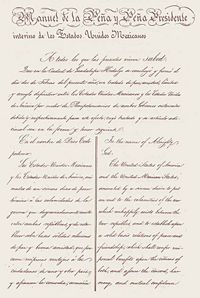 Manuel de la Peña y Peña Presidente
interino de los Estados Unidos Mexicanos
A todos los que las presentes vieren sabed:
Que en la Ciudad de Guadalupe Hidalgo se concluyó y firmó el
día dos de Febrero del presente año, un tratado de paz, amistad, límites
y arreglo definitivo entre los Estados Unidos Mexicanos y los Estados Unidos
de América por medio de Plenipotenciarios de ambos Gobiernos autorizados
debida y respectivamente para este efecto, cuyo tratado y su artículo adi-
cional son en la forma y tenor siguiente.
En el nombre de Dios Todo-
poderoso:
Los Estados Unidos Mexicanos
y los Estados Unidos de América, ani-
mados de un sincero deseo de poner
término a las calamidades de la
guerra que desgraciadamente existe
entre ambas repúblicas, y de esta-
blecer sobre bases sólidas relaciones
de paz y buena amistad, que pro-
curen recíprocas ventajas a los
ciudadanos de uno y otro país,
y afiancen la concordia, armonía
In the name of Almighty
God:
The United States of America
and the United Mexican States,
animated by a sincere desire to put
an end to the calamities of the war
which unhappily exists between the
two republics, and to establish upon
a solid basis relations of peace and
friendship, which shall confer reci-
procal benefits upon the citizens of
both, and assure the concord, har-
mony and mutual confidence